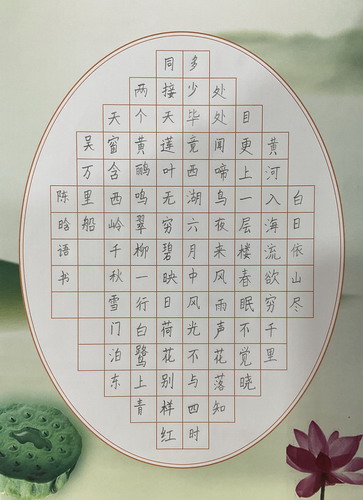 白日依山尽
黄河入海流欲穷千里
目更上一层楼春眠不觉晓
处处闻啼鸟夜来风雨声花落知
多少毕竟西湖六月中风光不与四时
同接天莲叶无穷碧映日荷花别样红
两个黄鹂鸣翠柳一行白鹭上青
天窗含西岭千秋雪门泊东
吴万里船
陈晗语书